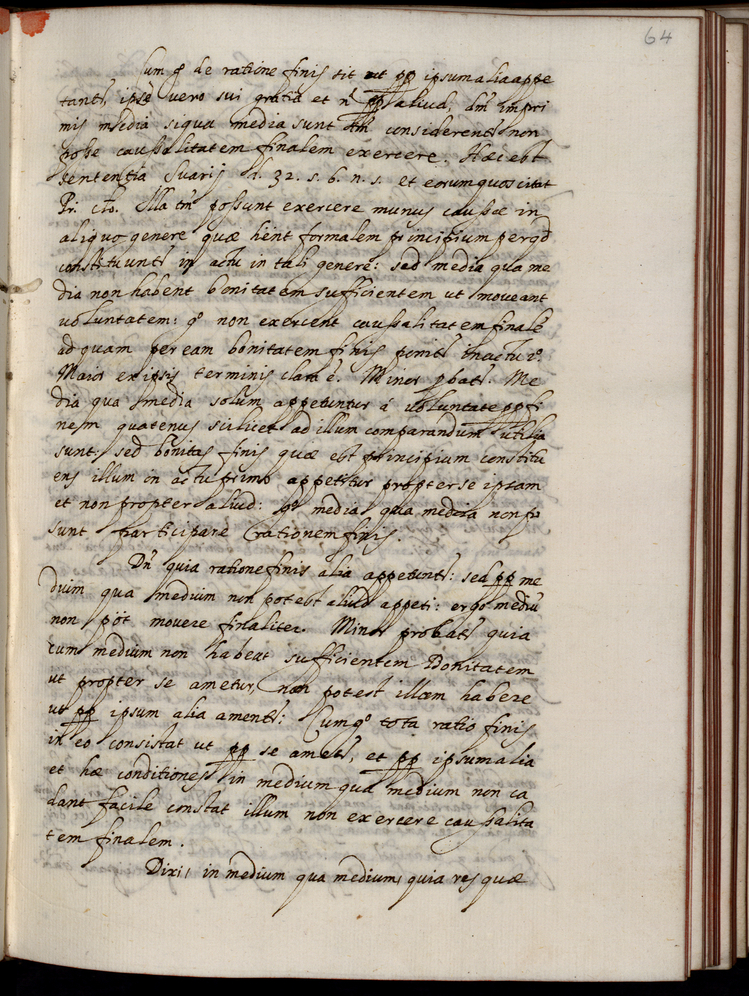 64
lum q de ratione finis sit ut pp ipsum alia appe
tant^r, ipse vero sui gratia et n pp aliud, dm impri
mis media siqua media sunt tm considerent^r non
posse caussalitatem finalem exercere. Hæc est
sententia Suarij d. 32. s. 6. n. s. et eorum quos citat
Pr. cto. Illa tm possunt exercere munus caussæ in
aliquo genere quæ hent formalem principium per qd
constituunt^r in actu in tali genere: sed media qua me
dia non habent bonitatem sufficientem ut moveant
voluntatem: g° non exercent caussalitatem finalē
ad quam per eam bonitatem finis ponit^r in actu 1°.
Maior ex ipsis terminis clara ē. Minor pbat^r. Me
dia qua media solum appetuntur á voluntate pp fi
nem quatenus scilicet ad illum comparandum utilia
sunt: sed bonitas finis quæ est principium constitu
ens illum in actu primo appetitur propter se ipsam
et non propter aliud: g° media qua media non pos
sunt participare rationem finis.
Dn quia ratione finis alia appetunt^r: sed pp me
dium qua medium non potest aliud appeti: ergo mediū
non pöt movere finaliter. Minor probat^r quia
cum medium non habeat sufficientem Bonitatem
ut propter se ametur, non potest illam habere
ut pp ipsum alia ament^r: Cumq° tota ratio finis
in eo consistat ut pp se amet^r, et pp ipsum alia
et hæ conditiones in medium qua medium non ca
dant facile constat illum non exercere caussalita
tem finalem.
Dixi, in medium qua medium, quia res quæ